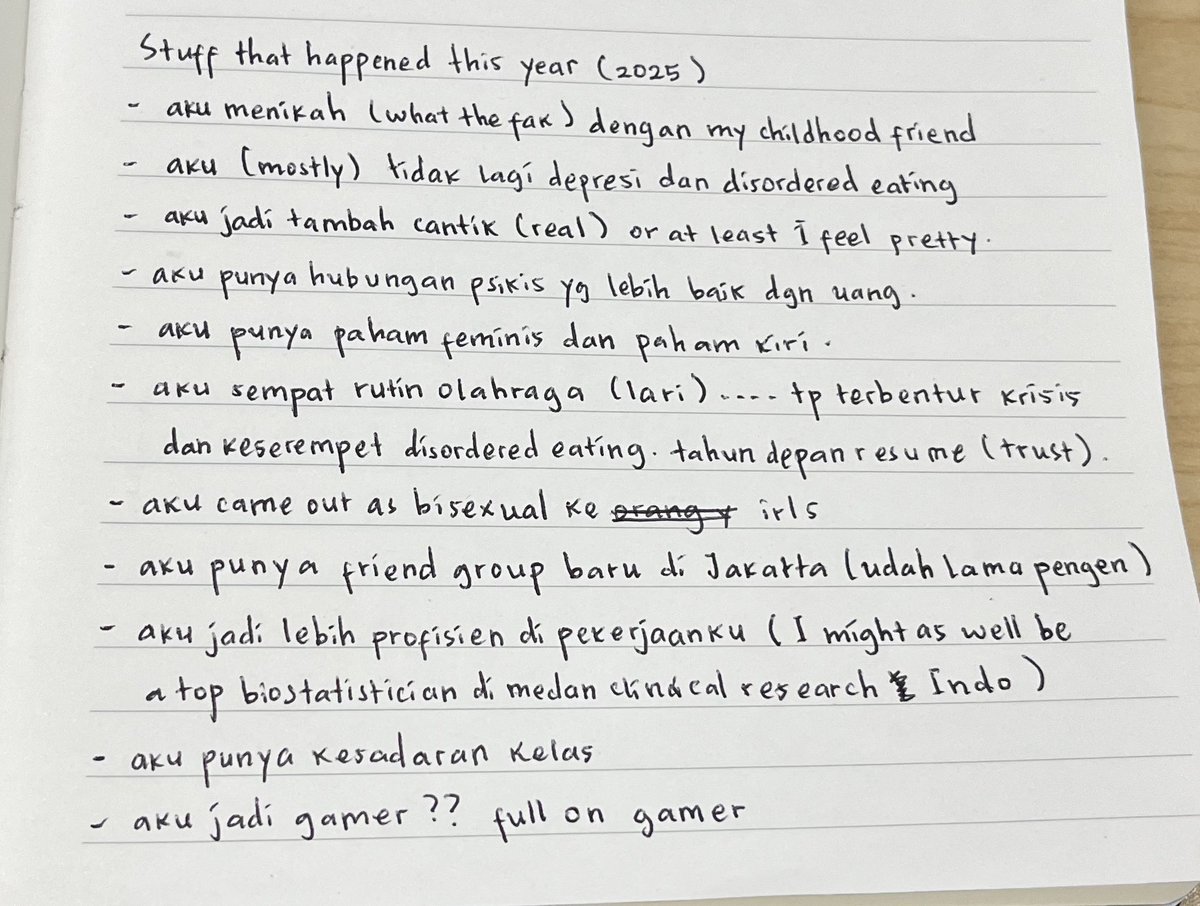 Stuff that happened this year (2025)
- aku menikah (what the fak) dengan my childhood friend
- aku (mostly) tidak lagi depresi dan disordered eating
- aku jadi tambah cantik (real) or at least I feel pretty.
- aku punya hubungan psikis yg lebih baik dgn uang.
- aku punya paham feminis dan paham kiri.
- aku sempat rutin olahraga (lari) .... tp terbentur krisis
dan keserempet disordered eating. tahun depan resume (trust).
- aku came out as bisexual ke orang y irls
- aku punya friend group baru di Jakarta (udah lama pengen)
- aku jadi lebih profisien di pekerjaanku (I might as well be
a top biostatistician di medan clinical research Indo)
- aku punya kesadaran kelas
- aku jadi gamer?? full on gamer